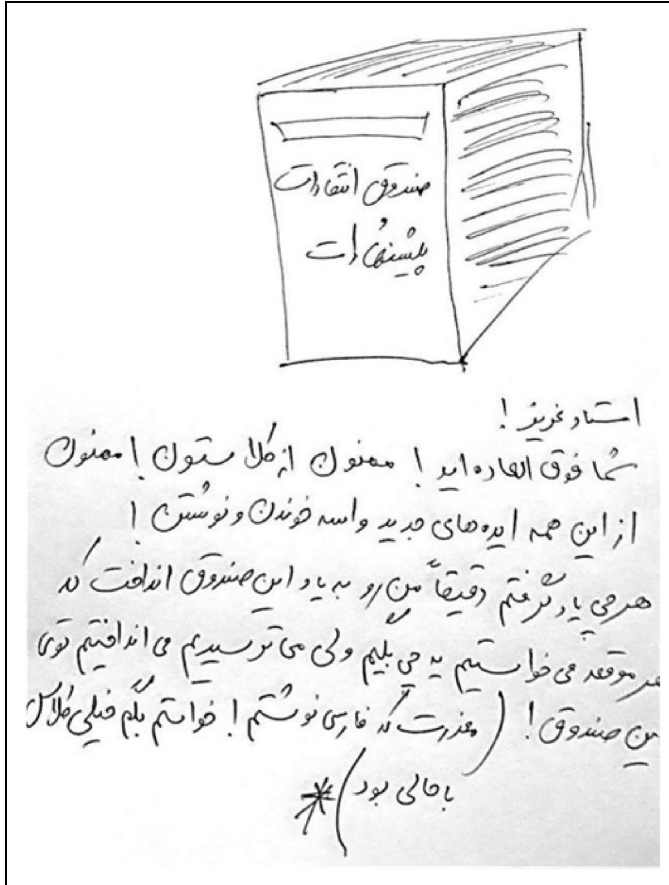 صندوق انتقادات
پیشنهادات
استاد عزیز!
شما فوق العاده اید! ممنون از کلاستون! ممنون
از این همه ایده های جدید واسه خوندن و نوشتن!
هرچی یاد گرفتم دقیقاً من رو به یاد این صندوق انداخت که
هر موقعه می خواستیم یه چی بگیم ولی می ترسیدیم می انداختیم توی
این صندوق! (معذرت که فارسی نوشتم! خواستم بگم خیلی کلاس
باحالی بود)*